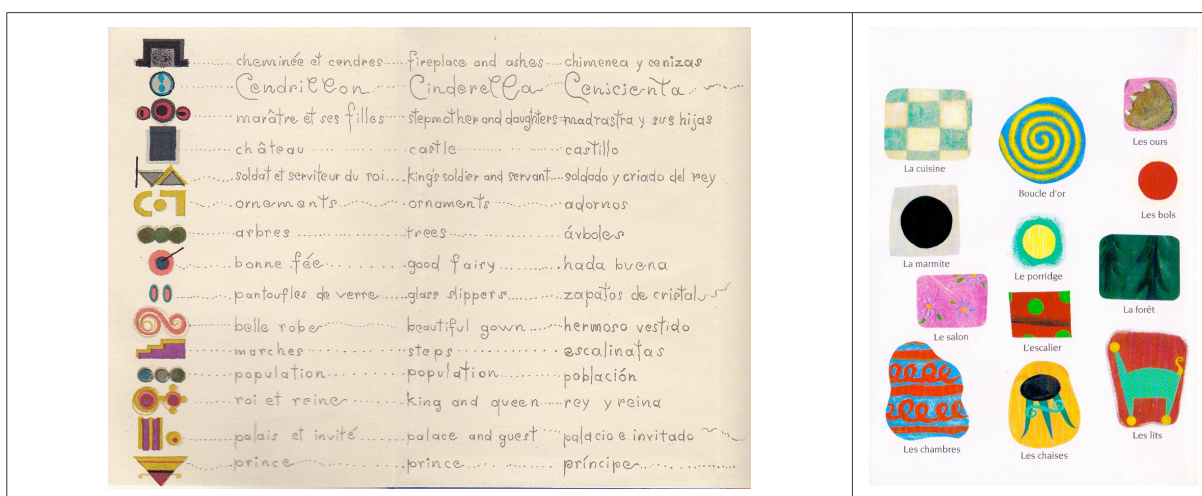 cheminée et cendres fireplace and ashes chimenea y cenizas
Cendrillon Cinderella Cenicienta
marâtre et ses filles stepmother and daughters madrastra y sus hijas
château castle castillo
soldat et serviteur du roi king's soldier and servant soldado y criado del rey
ornements ornaments adornos
arbres trees árboles
bonne fée good fairy hada buena
pantoufles de verre glass slippers zapatos de cristal
belle robe beautiful gown hermoso vestido
marches steps escalinatas
population population población
roi et reine king and queen rey y reina
palais et invité palace and guest palacio e invitado
prince prince príncipe
La cuisine
Boucle d'or
Les ours
Les bols
La marmite
Le porridge
La forêt
Le salon
L'escalier
Les lits
Les chambres
Les chaises